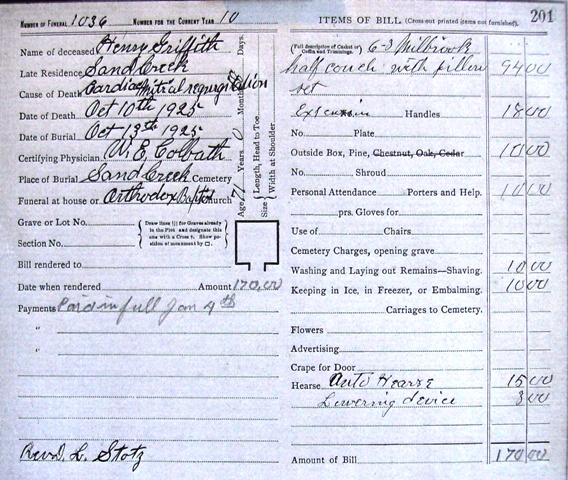 NUMBER OF FUNERAL 1036 NUMBER FOR THE CURRENT YEAR 10
Name of deceased Henry Griffith
Late Residence Sand Creek
Cause of Death Cardiac Mitral regurgitation
Date of Death Oct 10th 1925
Date of Burial Oct 13th 1925
Certifying Physician W. E. Colbath
Place of Burial Sand Creek Cemetery
Funeral at house or Orthodox Baptist Church
Age 71 Years 0 Months Days.
Size { Length, Head to Toe
Width at Shoulder
Grave or Lot No.
Section No.
Draw lines (|) for Graves already
in the Plot and designate this
one with a Cross †. Show po-
sition of monument by □.
Bill rendered to
Date when rendered Amount 170.00
Payments Paid in full Jan 4th
"
"
Rev. D. L. Stotz
ITEMS OF BILL (Cross out printed items not furnished). 201
(Full description of Casket or Coffin and Trimmings. 6-3 Milbrook
half couch with pillow 94 00
set
Extension Handles 18 00
No. Plate
Outside Box, Pine, Chestnut, Oak, Cedar 10 00
No. Shroud
Personal Attendance Porters and Help. 10 00
prs. Gloves for
Use of Chairs
Cemetery Charges, opening grave
Washing and Laying out Remains—Shaving. 10 00
Keeping in Ice, in Freezer, or Embalming. 10 00
Carriages to Cemetery.
Flowers
Advertising
Crape for Door
Hearse Auto Hearse 15 00
Lowering device 3 00
Amount of Bill 170 00